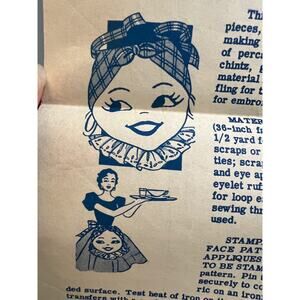 Thi
pieces,
making
of perca
chintz, g
material
fling for t
for embroi
MATER
(36-inch f
1/2 yard f
scraps or
ties; scra
and eye ap
eyelet ruf
for loop e
sewing thr
used.
STAMP
FACE PAT
APPLIQUES
TO BE STAM
pattern. Pin t
securely to co
ric on an iron
ded surface. Test heat of iron o
transfers with